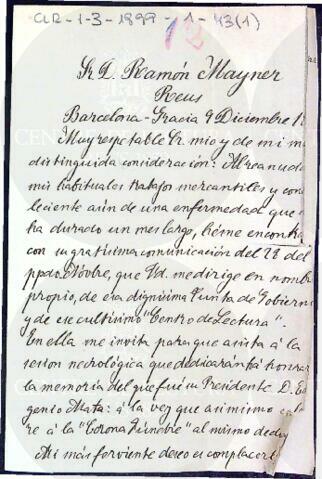 CLR-1-3-1899-1-43(1)
Sr. D. Ramón Mayner
Reus
Barcelona-Gracia 9 Diciembre 1.
Muy respetable Sr. mio y de mi m
distinguida consideración: Al reanuda
mis habituales trabajos mercantiles y conva
leciente aún de una enfermedad que
ha durado un mes largo, héme encontra
con su gratísima comunicación del 28 del
ppdo. Novbre, que Vd. me dirige en nombre
propio, de esa dignísima Junta de Gobierno
y de ese cultísimo "Centro de Lectura".
En ella me invita para que asista á la
sesion necrológica que dedicarán á honrar
la memoria del que fué su Presidente D. Eu
genio Mata: á la vez que asimismo
re á la "Corona Fúnebre" al mismo dedi
Mi más ferviente deseo es complacerl